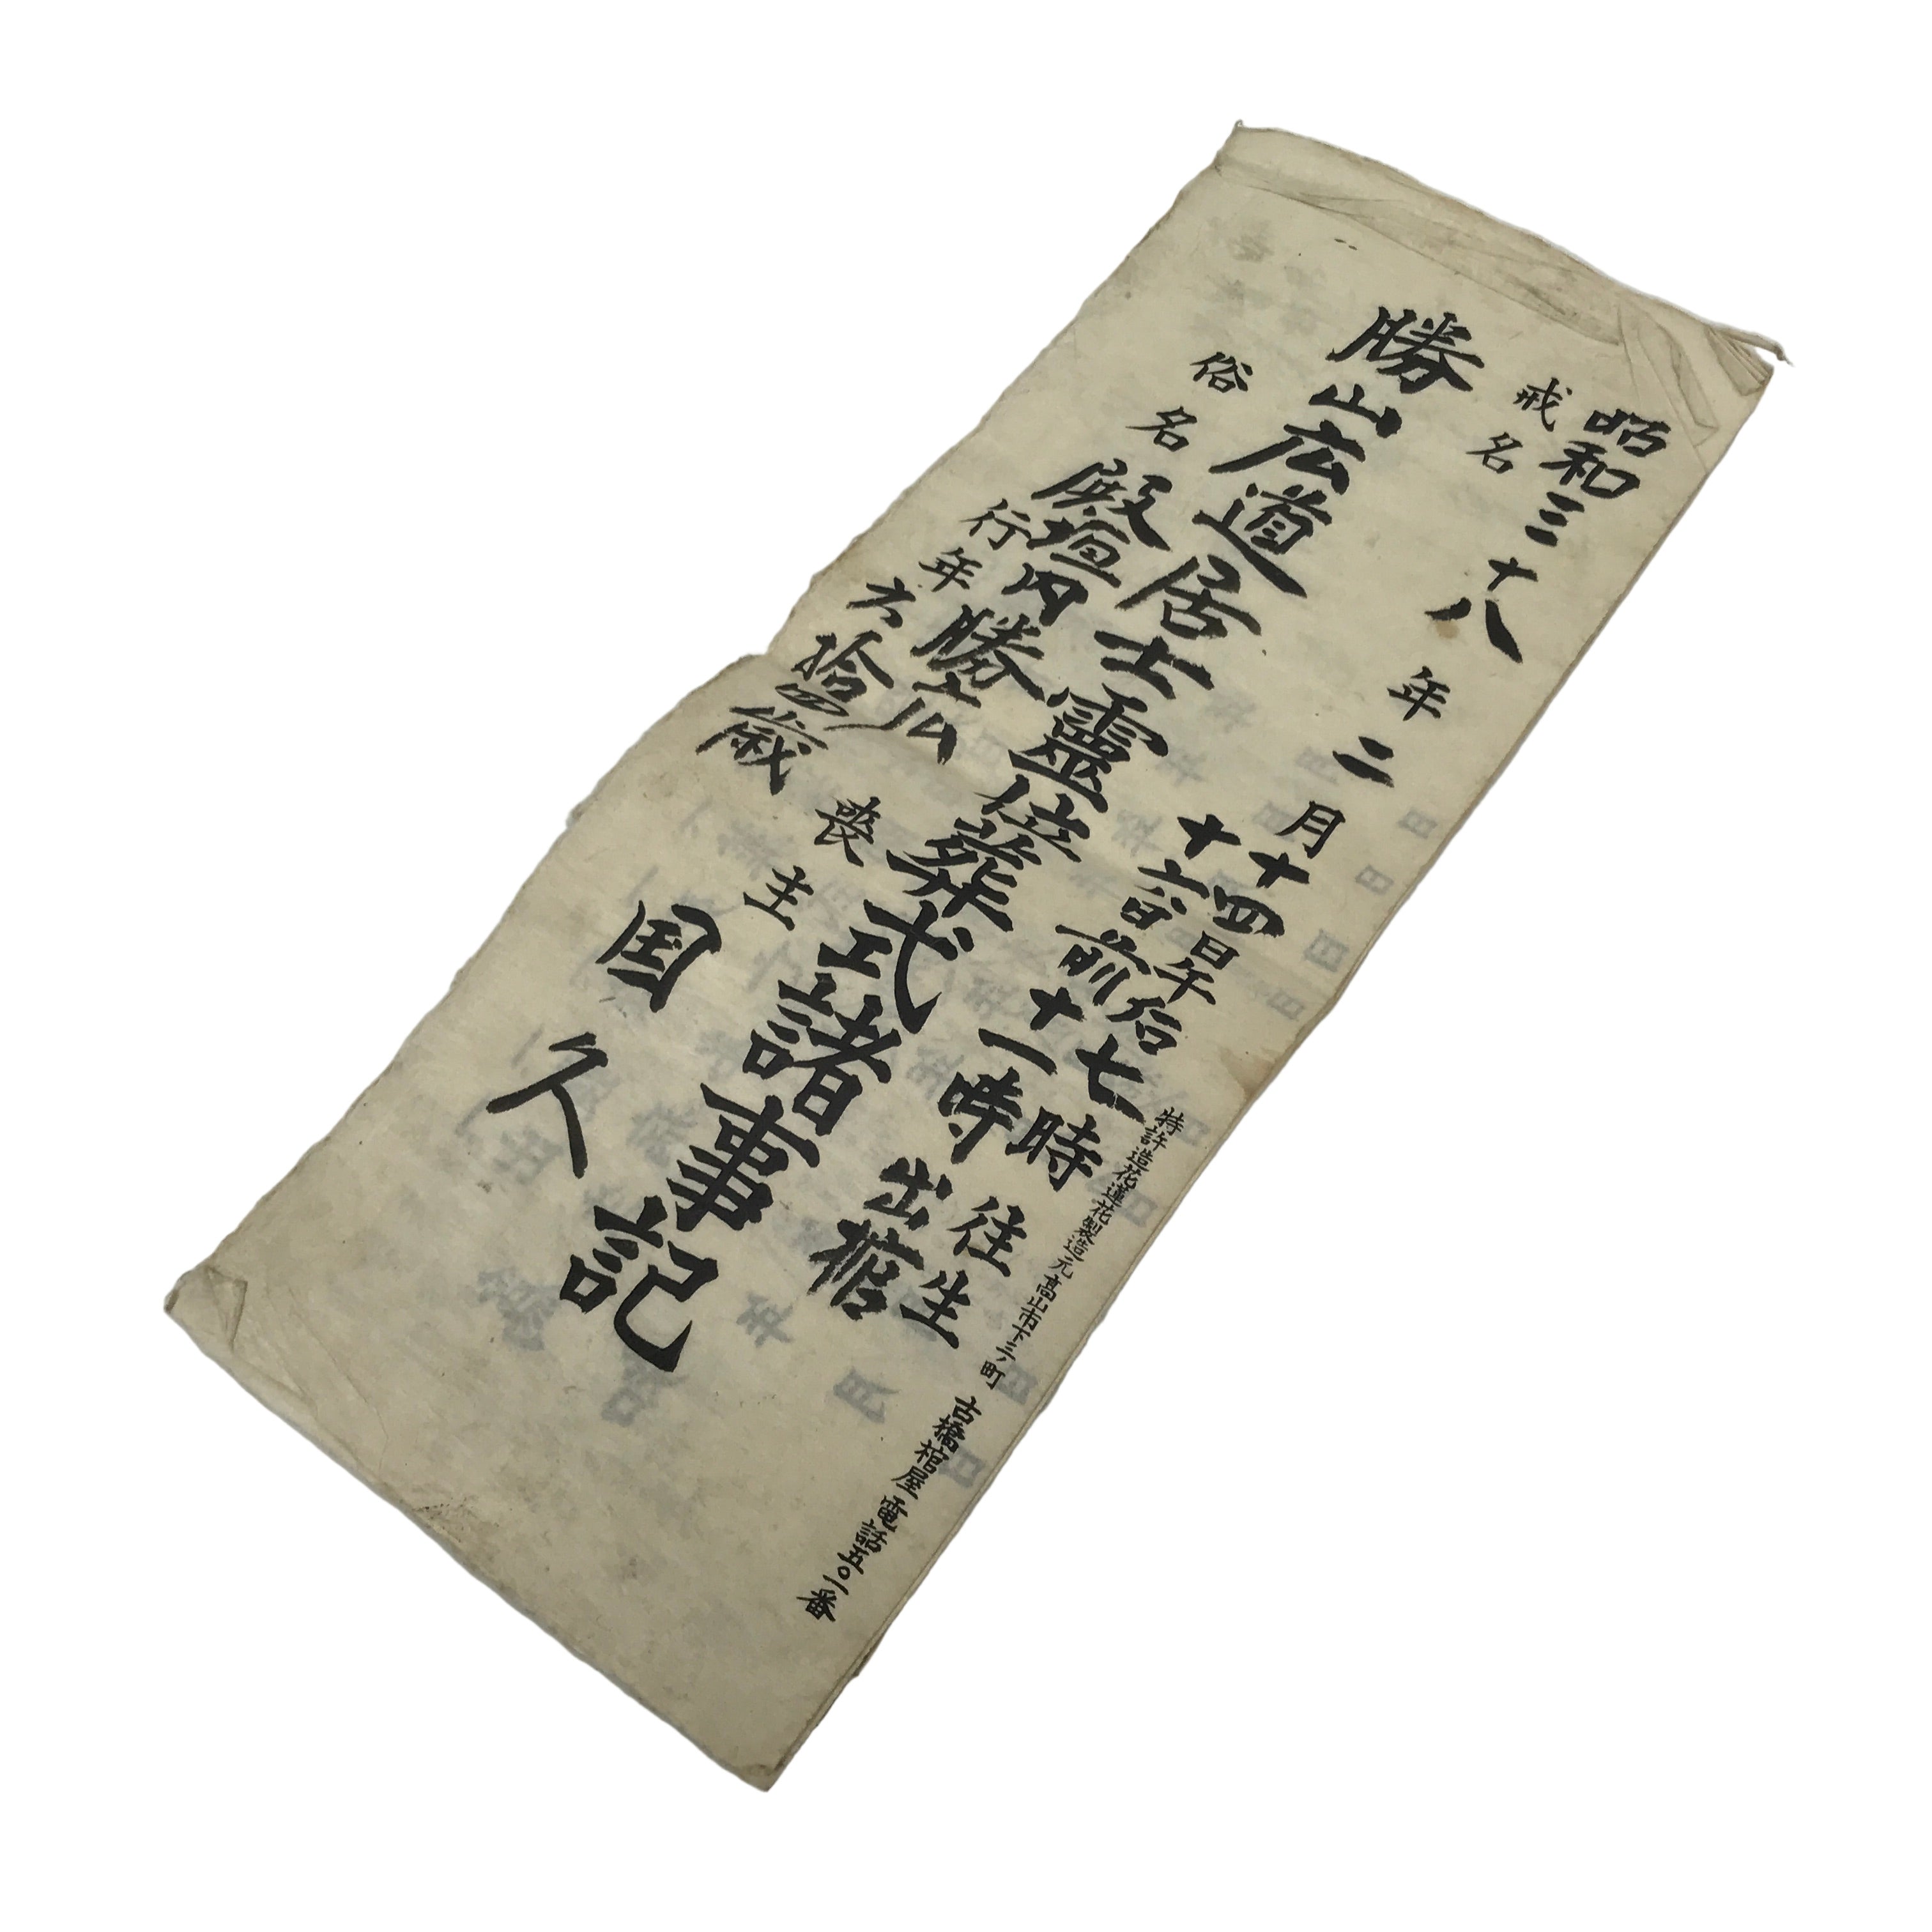 昭和三十八年二月十四日午后七時 往生
十六日前十一時 出棺
戒名
勝山広道居士靈位葬式諸事記
俗名
殿垣内勝広
行年
六拾四歳
喪主
国久
特許造花蓮花製造元 髙山市下三ノ町 古橋棺屋 電話五〇一番